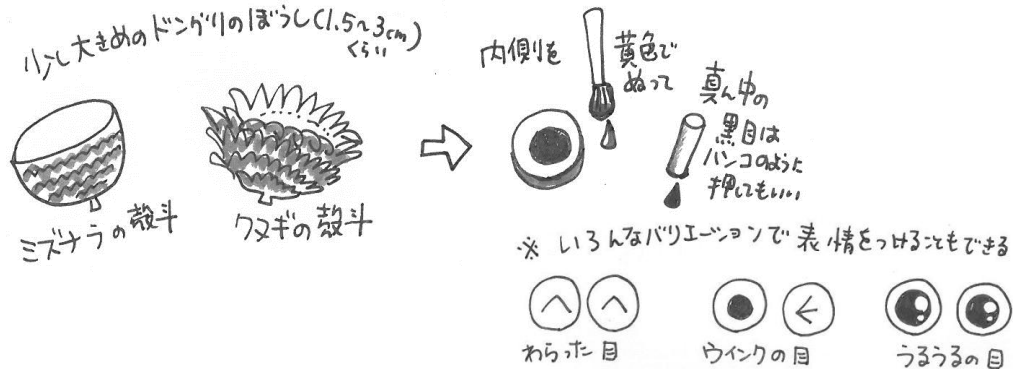 少し大きめのドングリのぼうし(1.5~3cm)
くらい
ミズナラの殻斗
クヌギの殻斗
内側を
黄色で
ぬって
真ん中の
黒目は
ハンコのように
押してもいい
※ いろんなバリエーションで表情をつけることもできる
わらった目
ウインクの目
うるうるの目